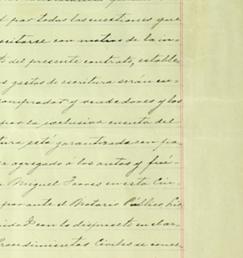 por todas las cuestiones que
suscitarse con motivo de la in
del presente contrato, estable
gastos de escritura serán cu
comprador y vendedores y los
por la esclusiva cuenta del
está garantizada con pa
agregado a los autos y
Miguel Torres en esta Ciu
por ante el Notario Público
con lo dispuesto en el ar
Procedimientos Civiles se